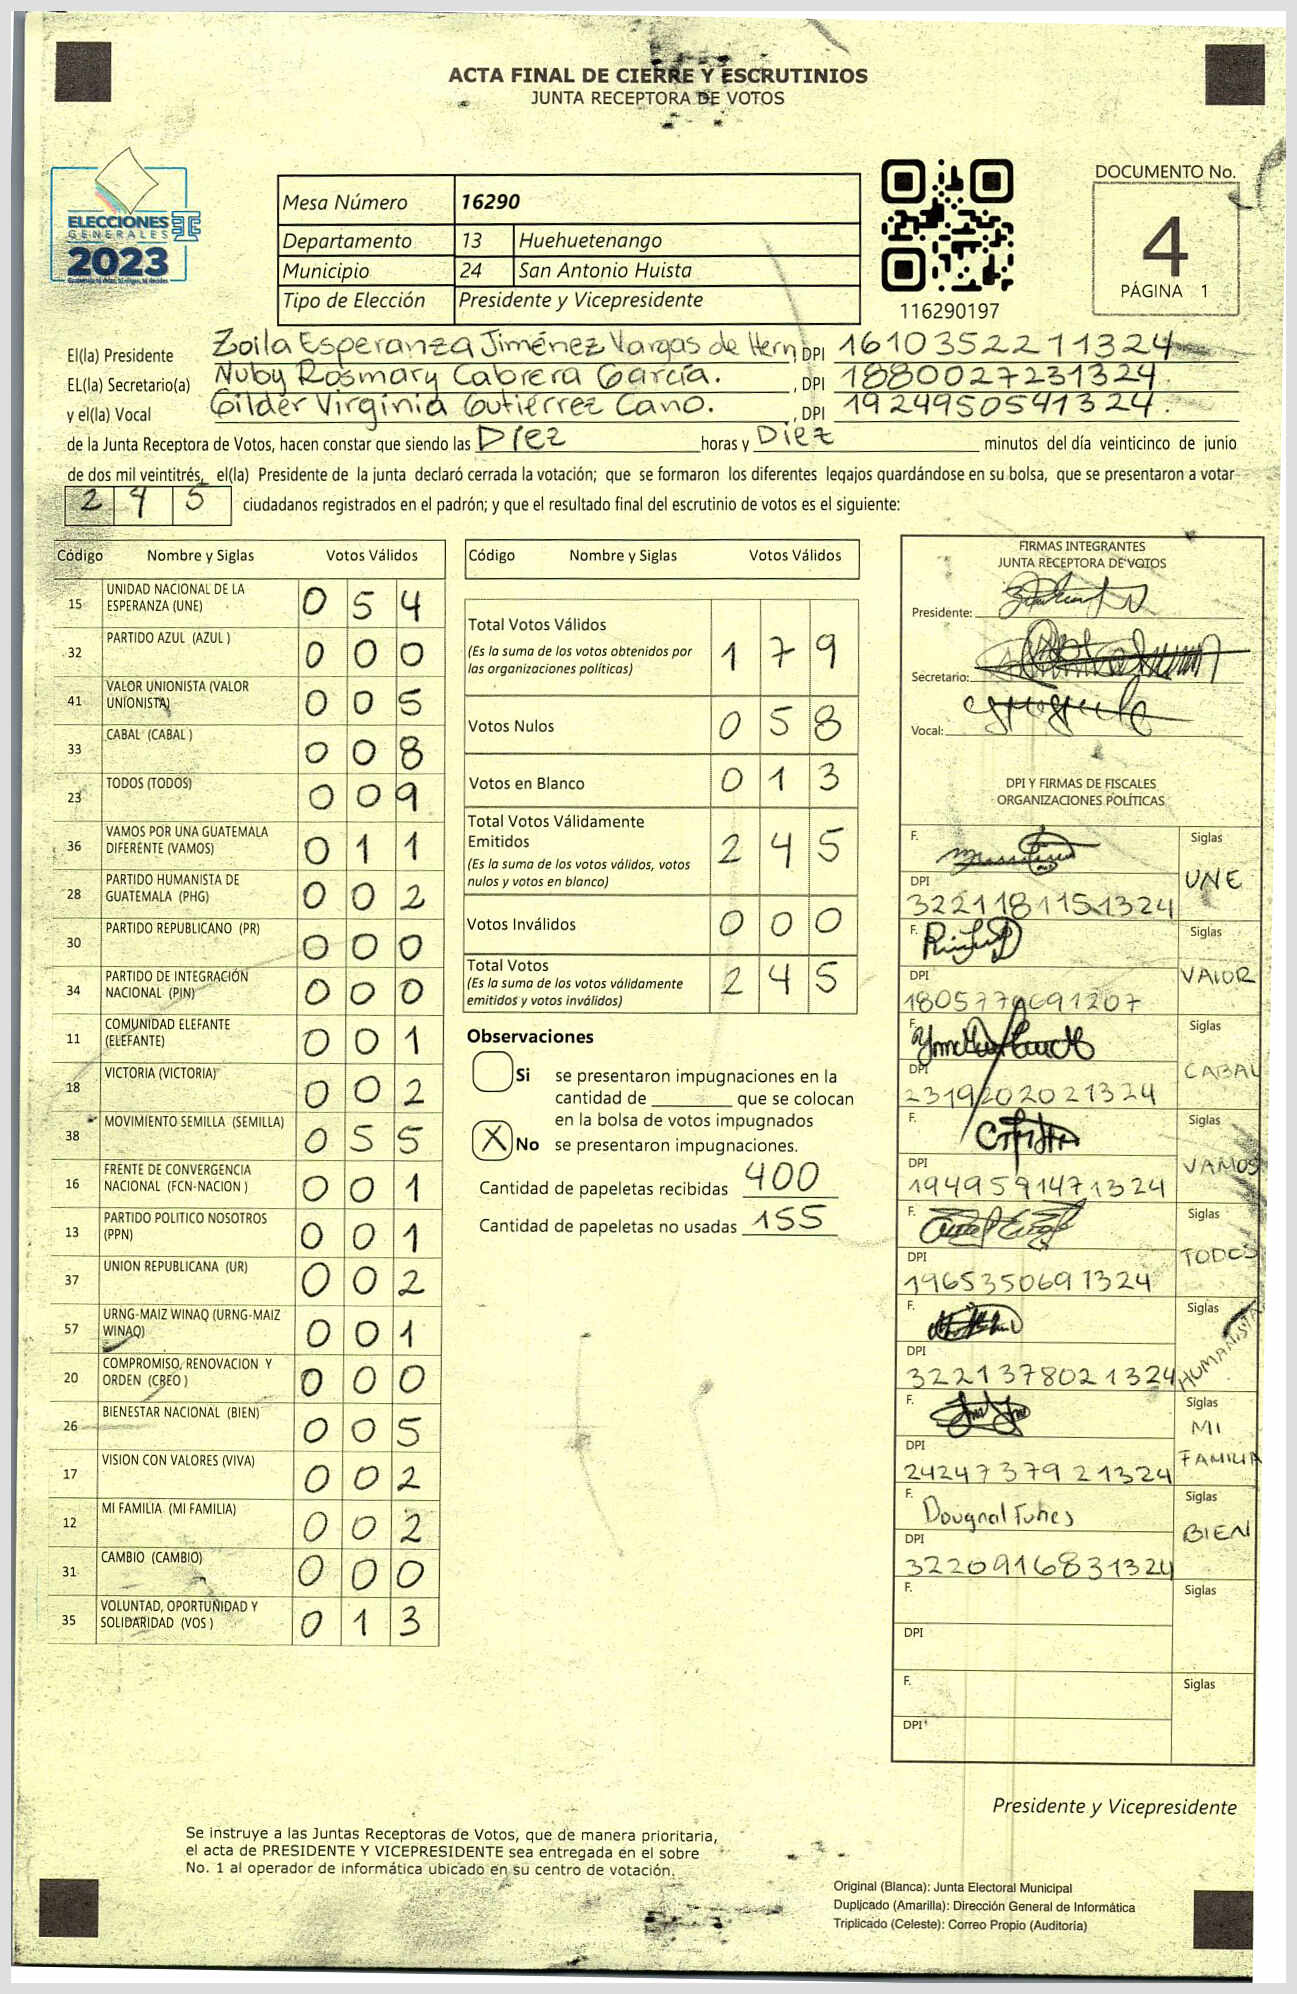 ACTA FINAL DE CIERRE Y ESCRUTINIOS
JUNTA RECEPTORA DE VOTOS
ELECCIONES
GENERALES
2023
Mesa Número 16290
Departamento 13 Huehuetenango
Municipio 24 San Antonio Huista
Tipo de Elección Presidente y Vicepresidente
116290197
DOCUMENTO No.
4
PÁGINA 1
El(la) Presidente Zoila Esperanza Jiménez Vargas de Hern, DPI 1610352211324
EL(la) Secretario(a) Nuby Rosmary Cabrera García. , DPI 1880027231324
y el(la) Vocal Gilder Virginia Gutiérrez Cano. , DPI 1924950541324.
de la Junta Receptora de Votos, hacen constar que siendo las Diez horas y Diez minutos del día veinticinco de junio
de dos mil veintitrés, el(la) Presidente de la junta declaró cerrada la votación; que se formaron los diferentes legajos guardándose en su bolsa, que se presentaron a votar
2 4 5 ciudadanos registrados en el padrón; y que el resultado final del escrutinio de votos es el siguiente:
Código Nombre y Siglas Votos Válidos
15 UNIDAD NACIONAL DE LA ESPERANZA (UNE) 0 5 4
32 PARTIDO AZUL (AZUL ) 0 0 0
41 VALOR UNIONISTA (VALOR UNIONISTA) 0 0 5
33 CABAL (CABAL ) 0 0 8
23 TODOS (TODOS) 0 0 9
36 VAMOS POR UNA GUATEMALA DIFERENTE (VAMOS) 0 1 1
28 PARTIDO HUMANISTA DE GUATEMALA (PHG) 0 0 2
30 PARTIDO REPUBLICANO (PR) 0 0 0
34 PARTIDO DE INTEGRACIÓN NACIONAL (PIN) 0 0 0
11 COMUNIDAD ELEFANTE (ELEFANTE) 0 0 1
18 VICTORIA (VICTORIA) 0 0 2
38 MOVIMIENTO SEMILLA (SEMILLA) 0 5 5
16 FRENTE DE CONVERGENCIA NACIONAL (FCN-NACION ) 0 0 1
13 PARTIDO POLITICO NOSOTROS (PPN) 0 0 1
37 UNION REPUBLICANA (UR) 0 0 2
57 URNG-MAIZ WINAQ (URNG-MAIZ WINAQ) 0 0 1
20 COMPROMISO, RENOVACION Y ORDEN (CREO ) 0 0 0
26 BIENESTAR NACIONAL (BIEN) 0 0 5
17 VISION CON VALORES (VIVA) 0 0 2
12 MI FAMILIA (MI FAMILIA) 0 0 2
31 CAMBIO (CAMBIO) 0 0 0
35 VOLUNTAD, OPORTUNIDAD Y SOLIDARIDAD (VOS ) 0 1 3
Código Nombre y Siglas Votos Válidos
Total Votos Válidos 1 7 9
(Es la suma de los votos obtenidos por
las organizaciones políticas)
Votos Nulos 0 5 8
Votos en Blanco 0 1 3
Total Votos Válidamente
Emitidos 2 4 5
(Es la suma de los votos válidos, votos
nulos y votos en blanco)
Votos Inválidos 0 0 0
Total Votos 2 4 5
(Es la suma de los votos válidamente
emitidos y votos inválidos)
Observaciones
Si se presentaron impugnaciones en la
cantidad de ________ que se colocan
en la bolsa de votos impugnados
X No se presentaron impugnaciones.
Cantidad de papeletas recibidas 400
Cantidad de papeletas no usadas 155
FIRMAS INTEGRANTES
JUNTA RECEPTORA DE VOTOS
Presidente:
Secretario:
Vocal:
DPI Y FIRMAS DE FISCALES
ORGANIZACIONES POLÍTICAS
F. Siglas
UNE
DPI
3221181151324
F. Siglas
VALOR
DPI
F. Siglas
CABAL
DPI
2319202021324
F. Siglas
VAMOS
DPI
1949591471324
F. Siglas
TODOS
DPI
1965350691324
F. Siglas
HUMANISTA
DPI
3221378021324
F. Siglas
MI
FAMILIA
DPI
2424737921324
F. Siglas
BIEN
DPI
3220916831324
F. Siglas
DPI
F. Siglas
DPI
Presidente y Vicepresidente
Se instruye a las Juntas Receptoras de Votos, que de manera prioritaria,
el acta de PRESIDENTE Y VICEPRESIDENTE sea entregada en el sobre
No. 1 al operador de informática ubicado en su centro de votación.
Original (Blanca): Junta Electoral Municipal
Duplicado (Amarilla): Dirección General de Informática
Triplicado (Celeste): Correo Propio (Auditoría)